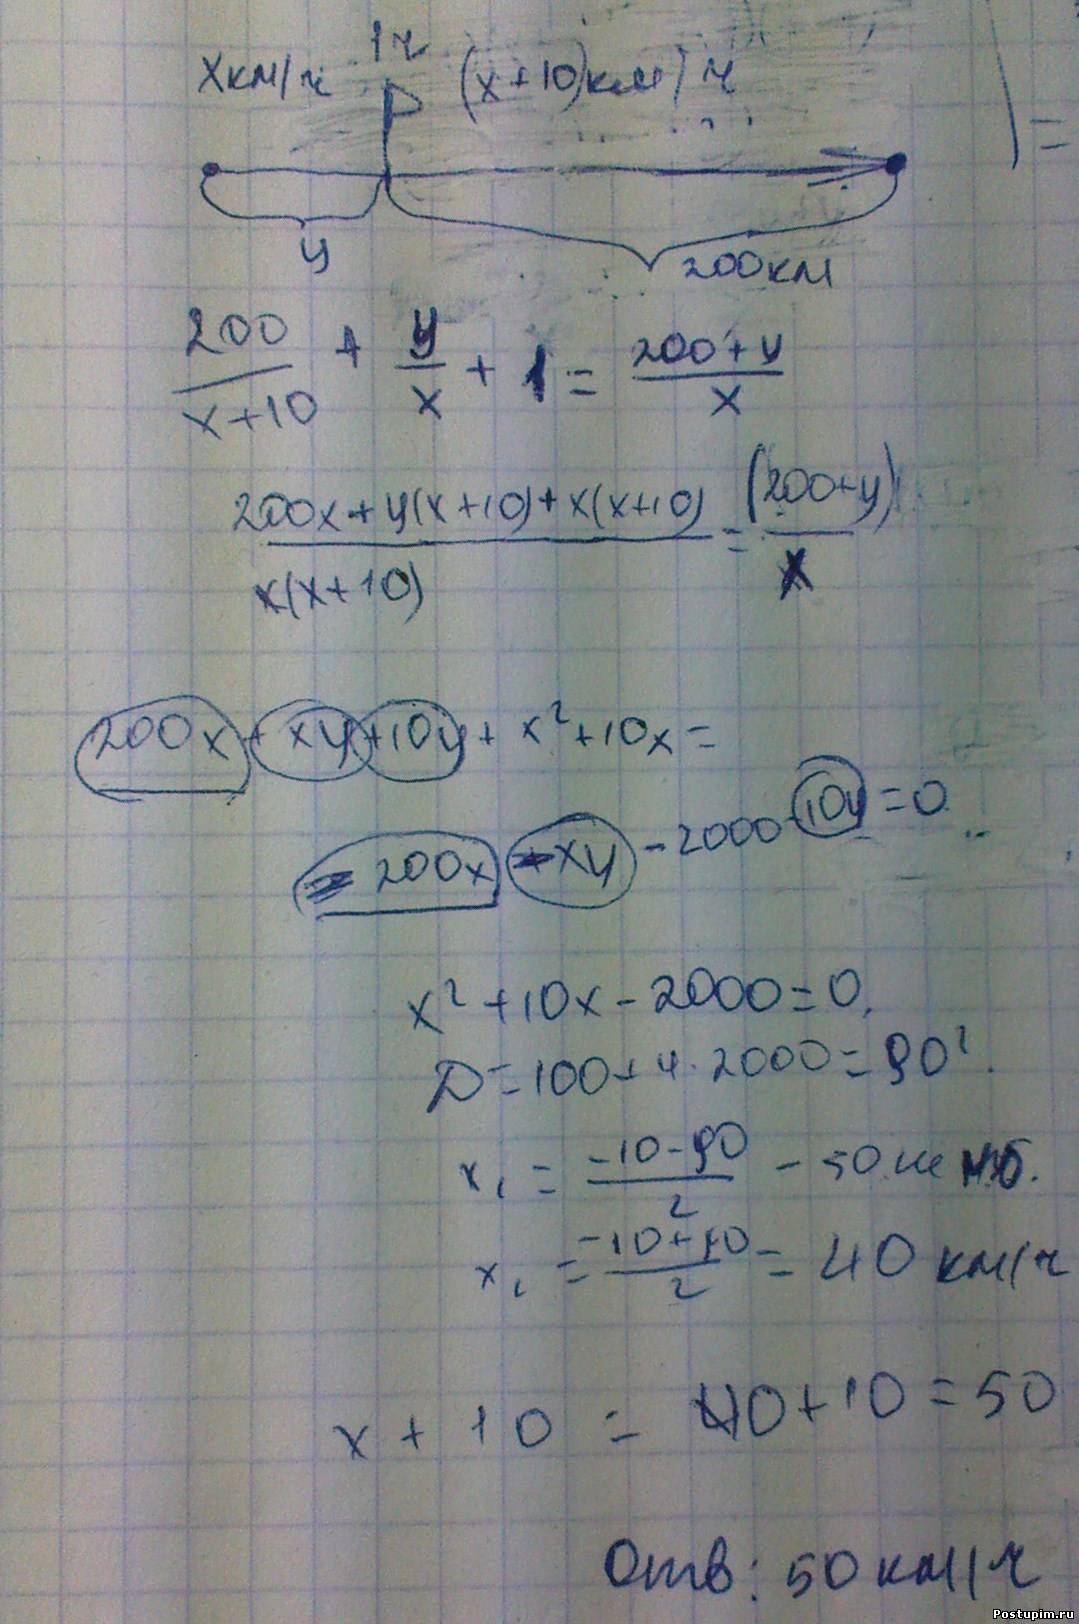 1ч
x км/ч (x+10) км/ч
y 200 км
200/(x+10) + y/x + 1 = (200+y)/x
(200x + y(x+10) + x(x+10))/(x(x+10)) = (200+y)/x
200x + xy + 10y + x² + 10x =
= 200x + xy - 2000 - 10y = 0
x² + 10x - 2000 = 0
D = 100 + 4·2000 = 90²
x₁ = (-10-90)/2 - 50 не м.б.
x₂ = (-10+90)/2 = 40 км/ч
x + 10 = 40 + 10 = 50
Отв: 50 км/ч
Postupim.ru